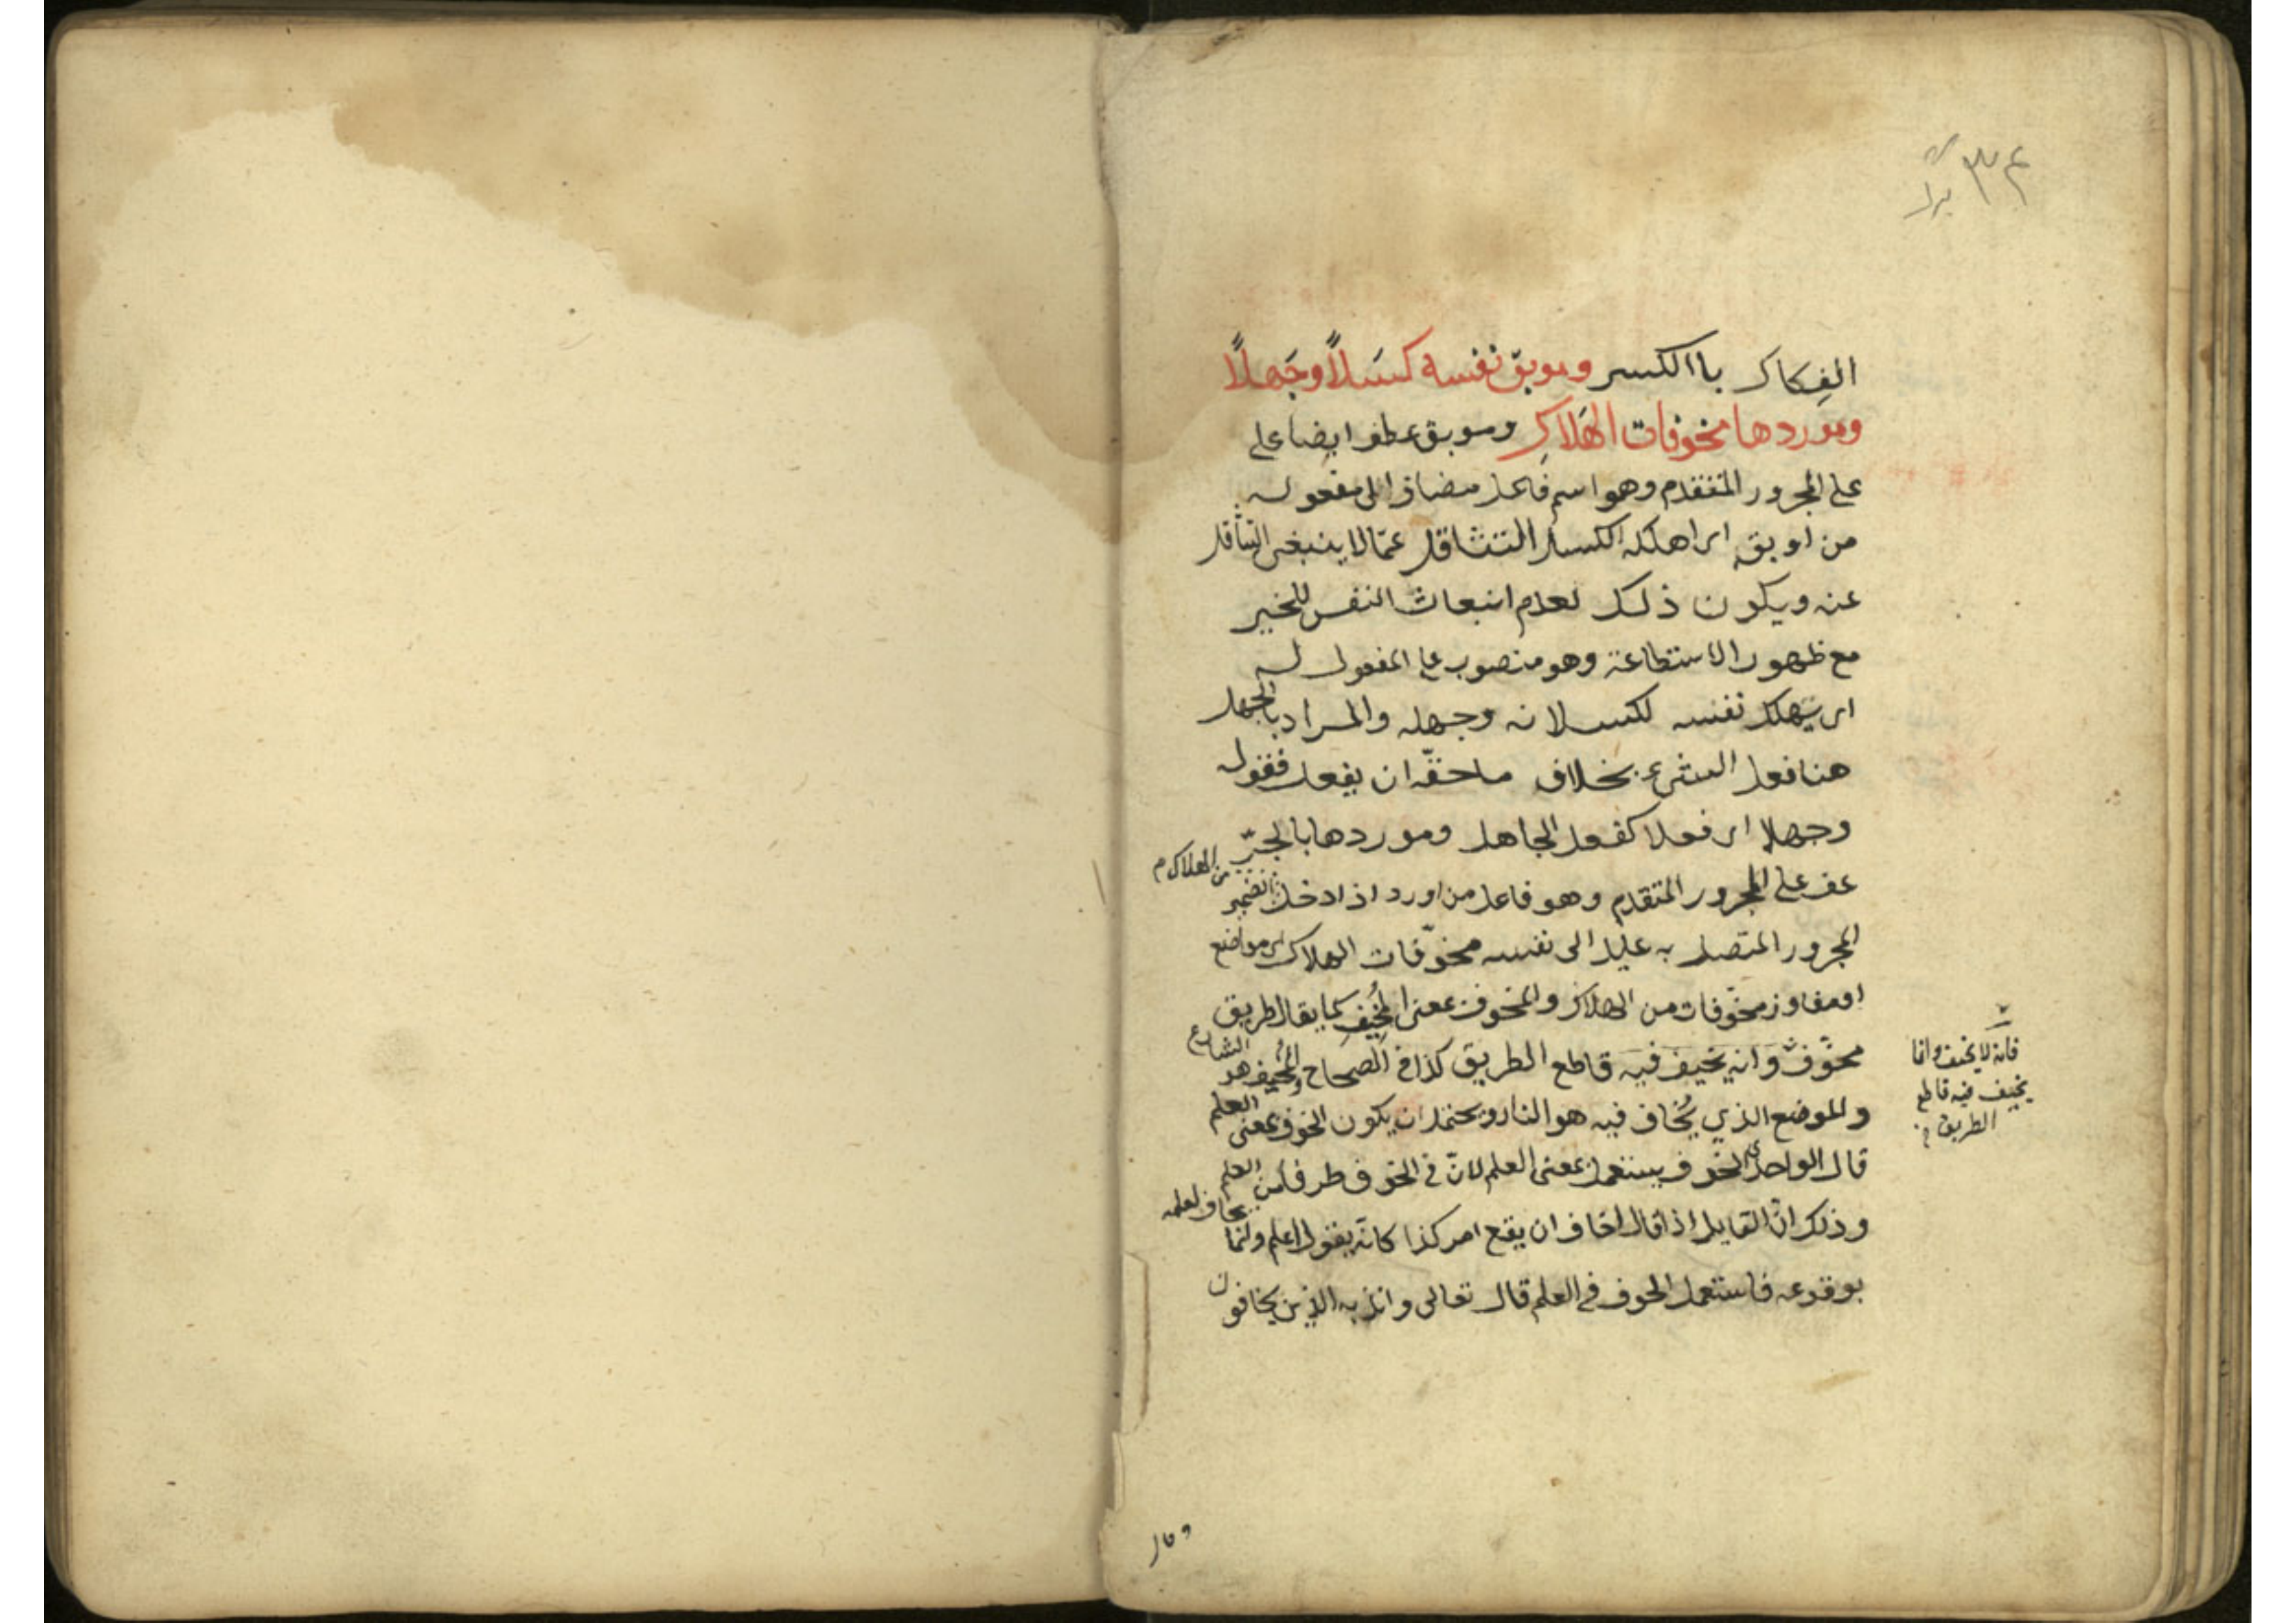 ٣٤
الفِكاك باالكسر وموبق نفسه كسَلاً وجَهلاً
وموردها مخوفات الهَلاكِ وموبق عطف ايضا على
على المجرور المتقدم وهو اسم فاعل مضاف الى مفعوله
من اوبق اى اهلكه الكسل التثاقل عمّا لا ينبغى التثاقل
عنه ويكون ذلك لعدم انبعاث النفس للخير
مع ظهور الاستطاعة وهو منصوب على المفعول له
اى يهلك نفسه لكسلانه وجهله والمراد بالجهل
هنا فعل الشىء بخلاف ما حقّه ان يفعل فقوله
وجهلا اى فعلا كفعل الجاهل وموردها بالجرّ
عف على المجرور المتقدم وهو فاعل من اورد اذا دخل
من الهلاك م
المجرور المتصل به عليل الى نفسه مخوّفات الهلاك اى مواضع
او مفاوز مخوّفات من الهلاك والمخوف بمعنى المُخِيفِ كما يقال طريق
مخوّفٌ وانه يخيف فيه قاطع الطريق كذا فى الصحاح والمخيف هو الشارع
والموضع الذي يُخاف فيه هو النار ويحتمل ان يكون الخوف بمعنى العلم
قال الواحدى الخوف يستعمل بمعنى العلم لانّ فى الخوف طرفا من العلم
وذلك انّ القايل اذا قال اخاف ان يقع امر كذا كانّه يقول اعلم وانما يخاف لعلمه
بوقوعه فاستعمل الخوف فى العلم قال تعالى وانذر به الذين يخافون
فانه لا يخيف وانما
يخيف فيه قاطع
الطريق